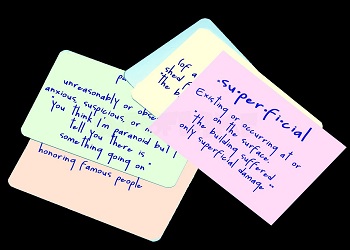 unreasonably or obse
anxious, suspicious, or
"You think I'm paranoid but I
tell you there is
something going on"
honoring famous people
(of a
shed f
the b
su·per·fi·cial
Existing or occurring at or
on the surface.
"the building suffered
only superficial damage"